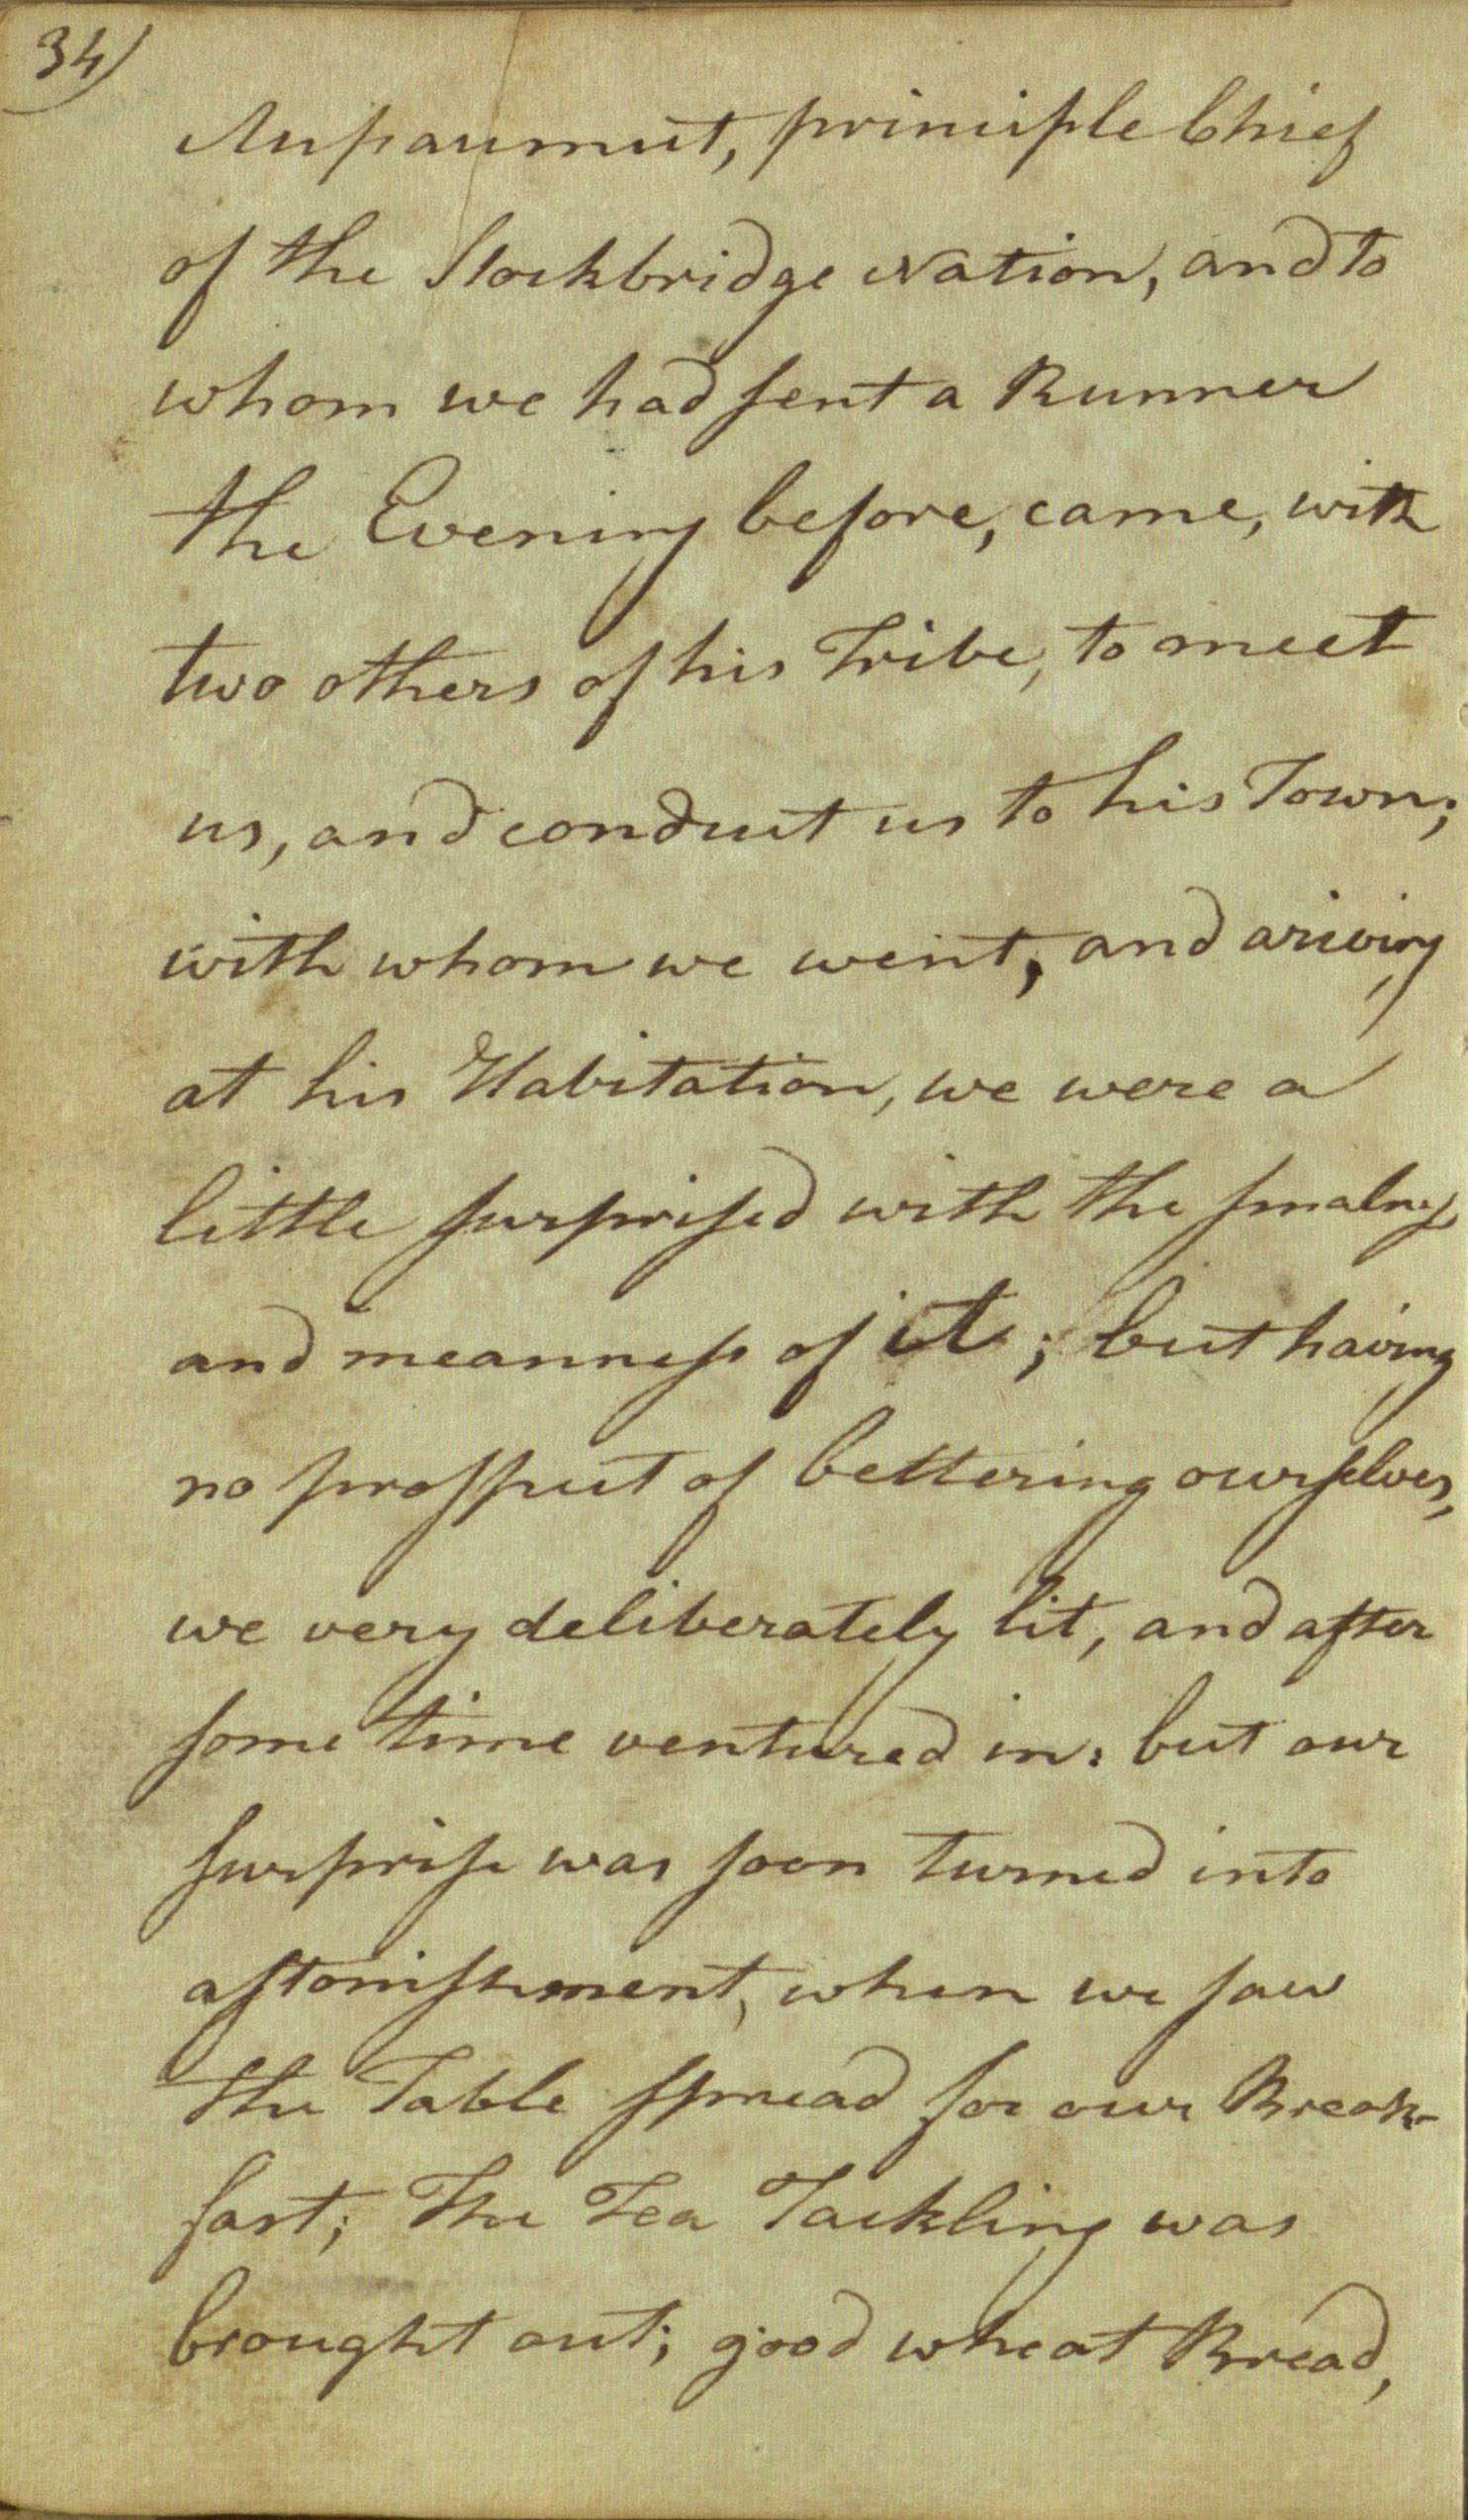 34)
Aupaumut, principle Chief
of the Stockbridge Nation, and to
whom we had sent a Runner
the Evening before, came, with
two others of his Tribe, to meet
us, and conduct us to his Town;
with whom we went, and ariving
at his Habitation, we were a
little surprised with the smalness
and meanness of it; but having
no prospect of bettering ourselves,
we very deliberately lit, and after
some time ventured in: but our
surprise was soon turned into
astonishment, when we saw
the Table spread for our Break-
fast; The Tea Tackling was
brought out; good wheat Bread,